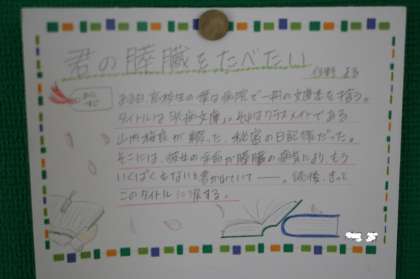 君の膵臓をたべたい
住野 よる
あら
すじ
ある日、高校生の僕は病院で一冊の文庫本を拾う。
タイトルは「共病文庫」。それはクラスメイトである
山内桜良が綴った、秘密の日記帳だった。
そこには、彼女の余命が膵臓の病気により、もう
いくばくもないと書かれていて──。読後、きっと
このタイトルに涙する。